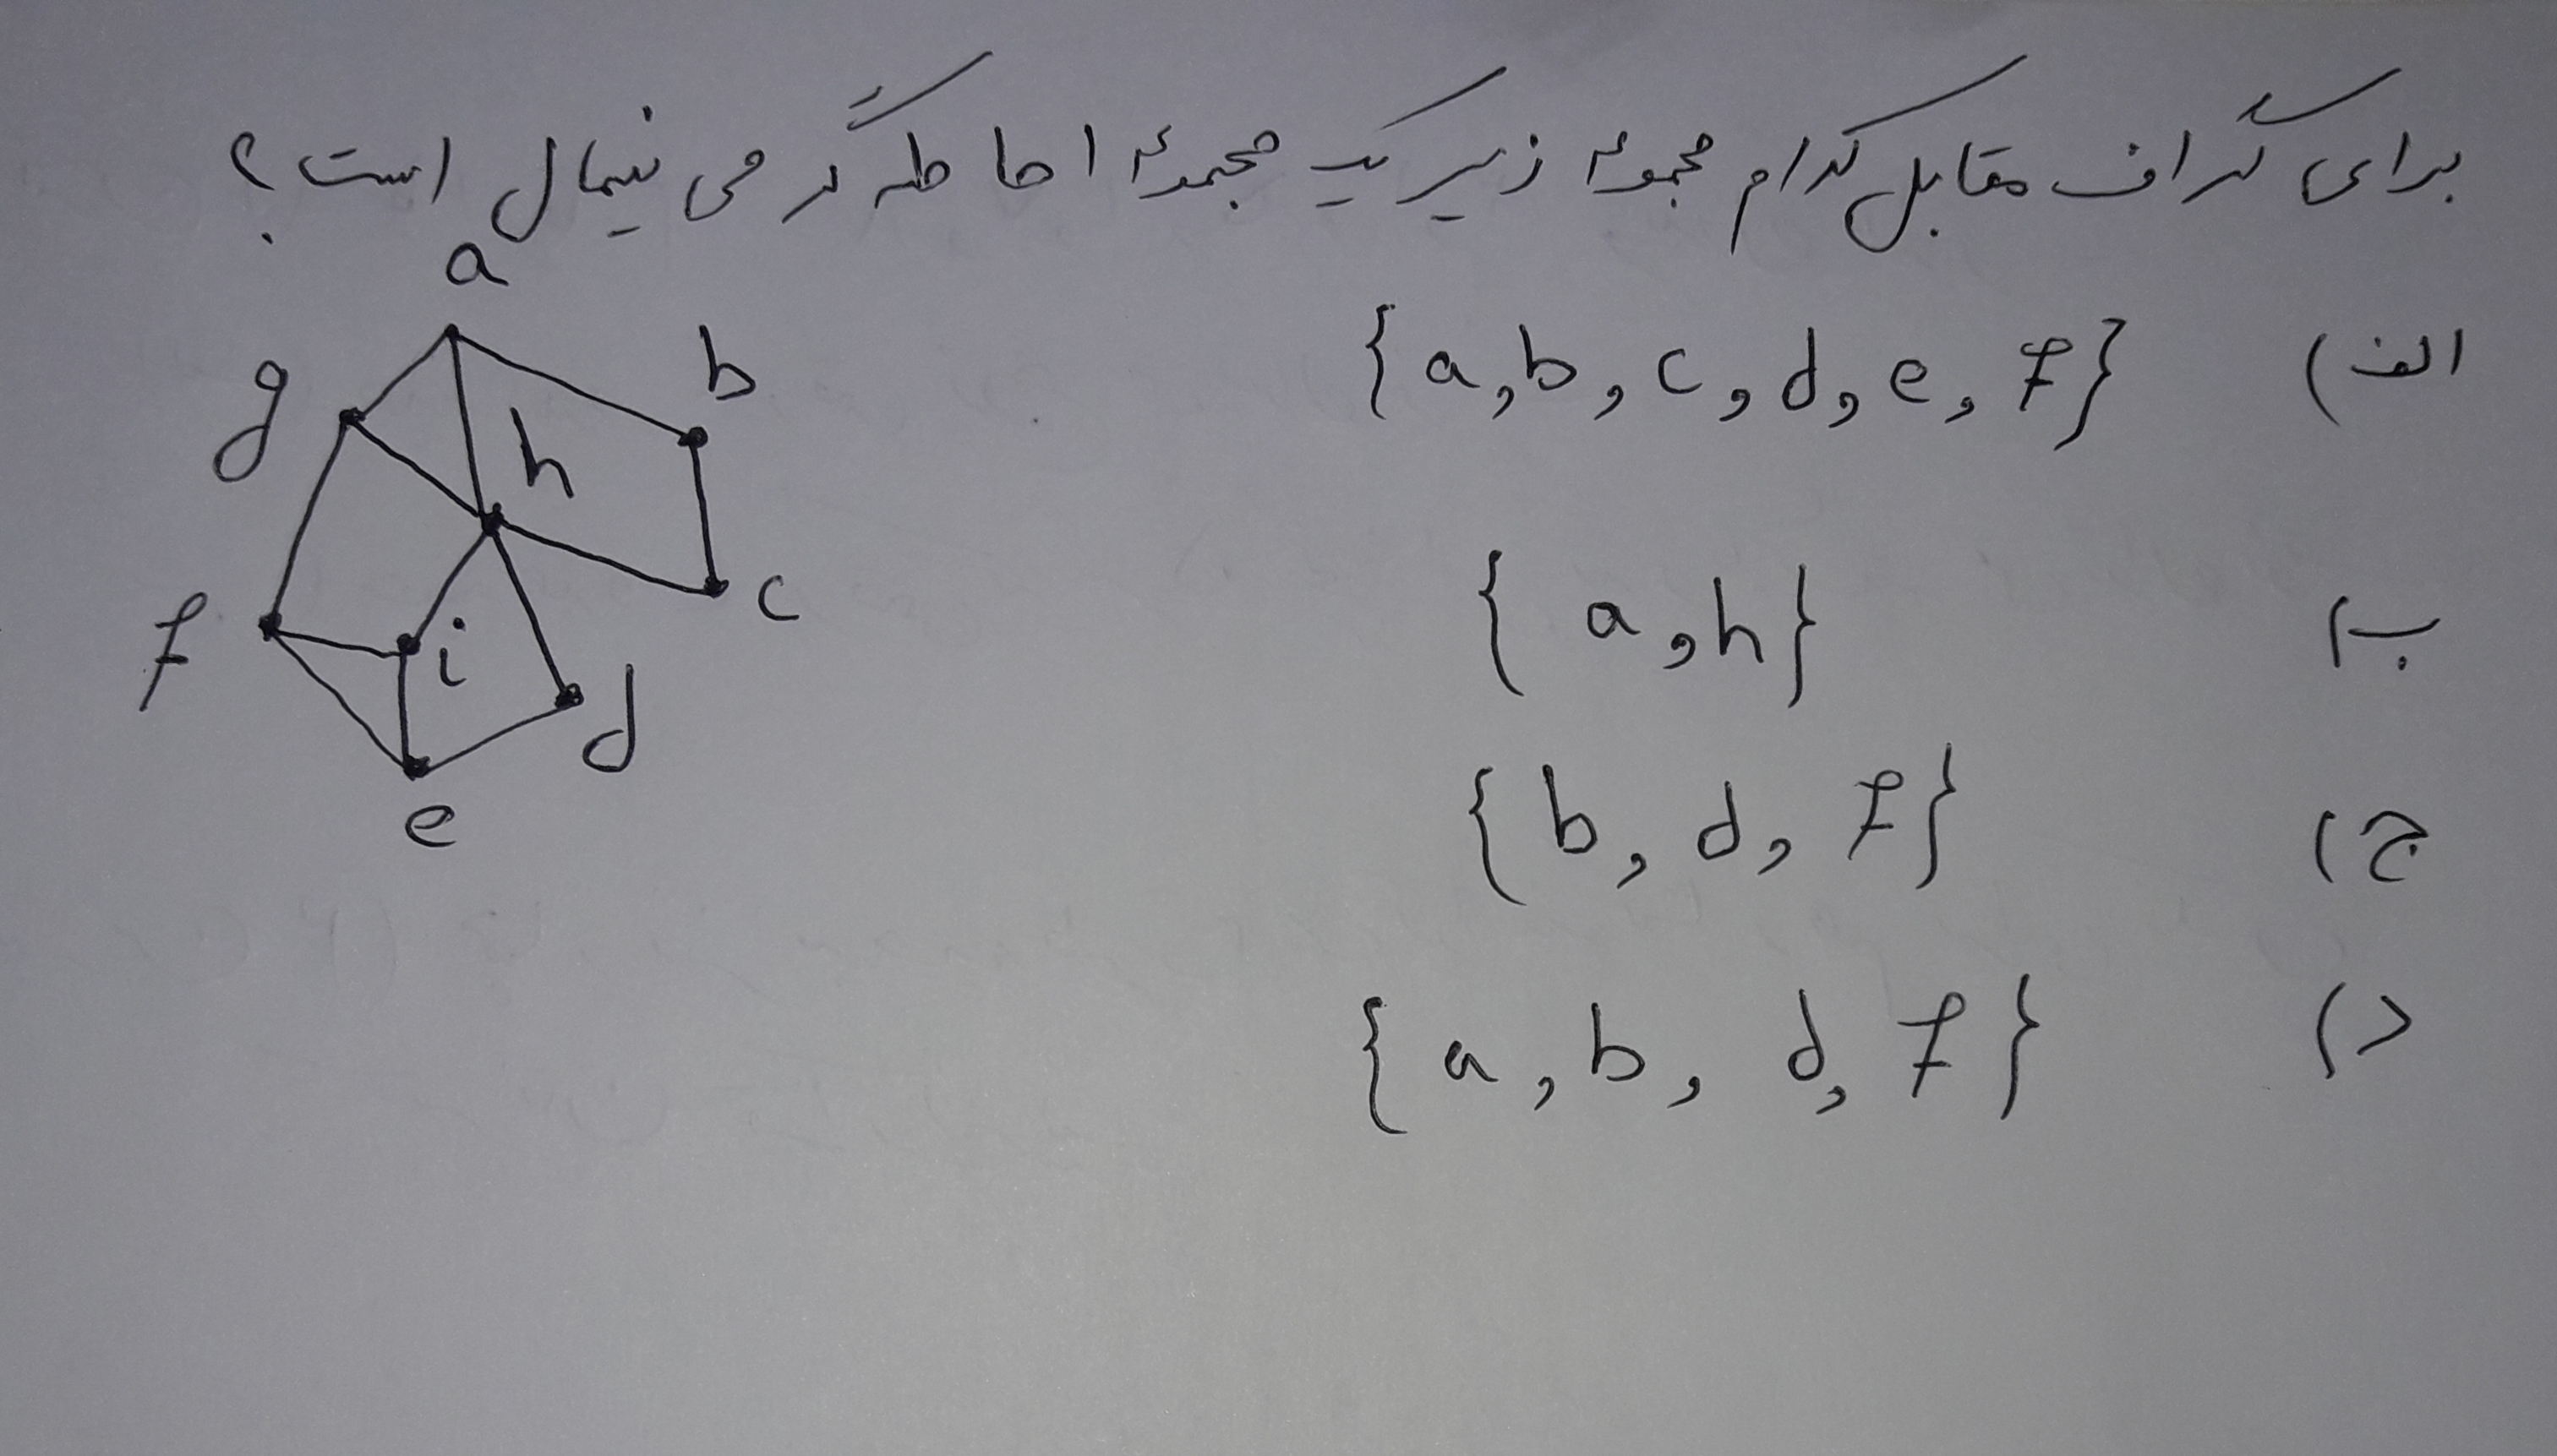 برای گراف مقابل کدام مجموعه زیر یک مجموعه احاطه گر می نیمال است؟
الف) {a,b,c,d,e,f}
ب) {a,h}
ج) {b,d,f}
د) {a,b,d,f}
a
b
g
h
c
f
i
d
e